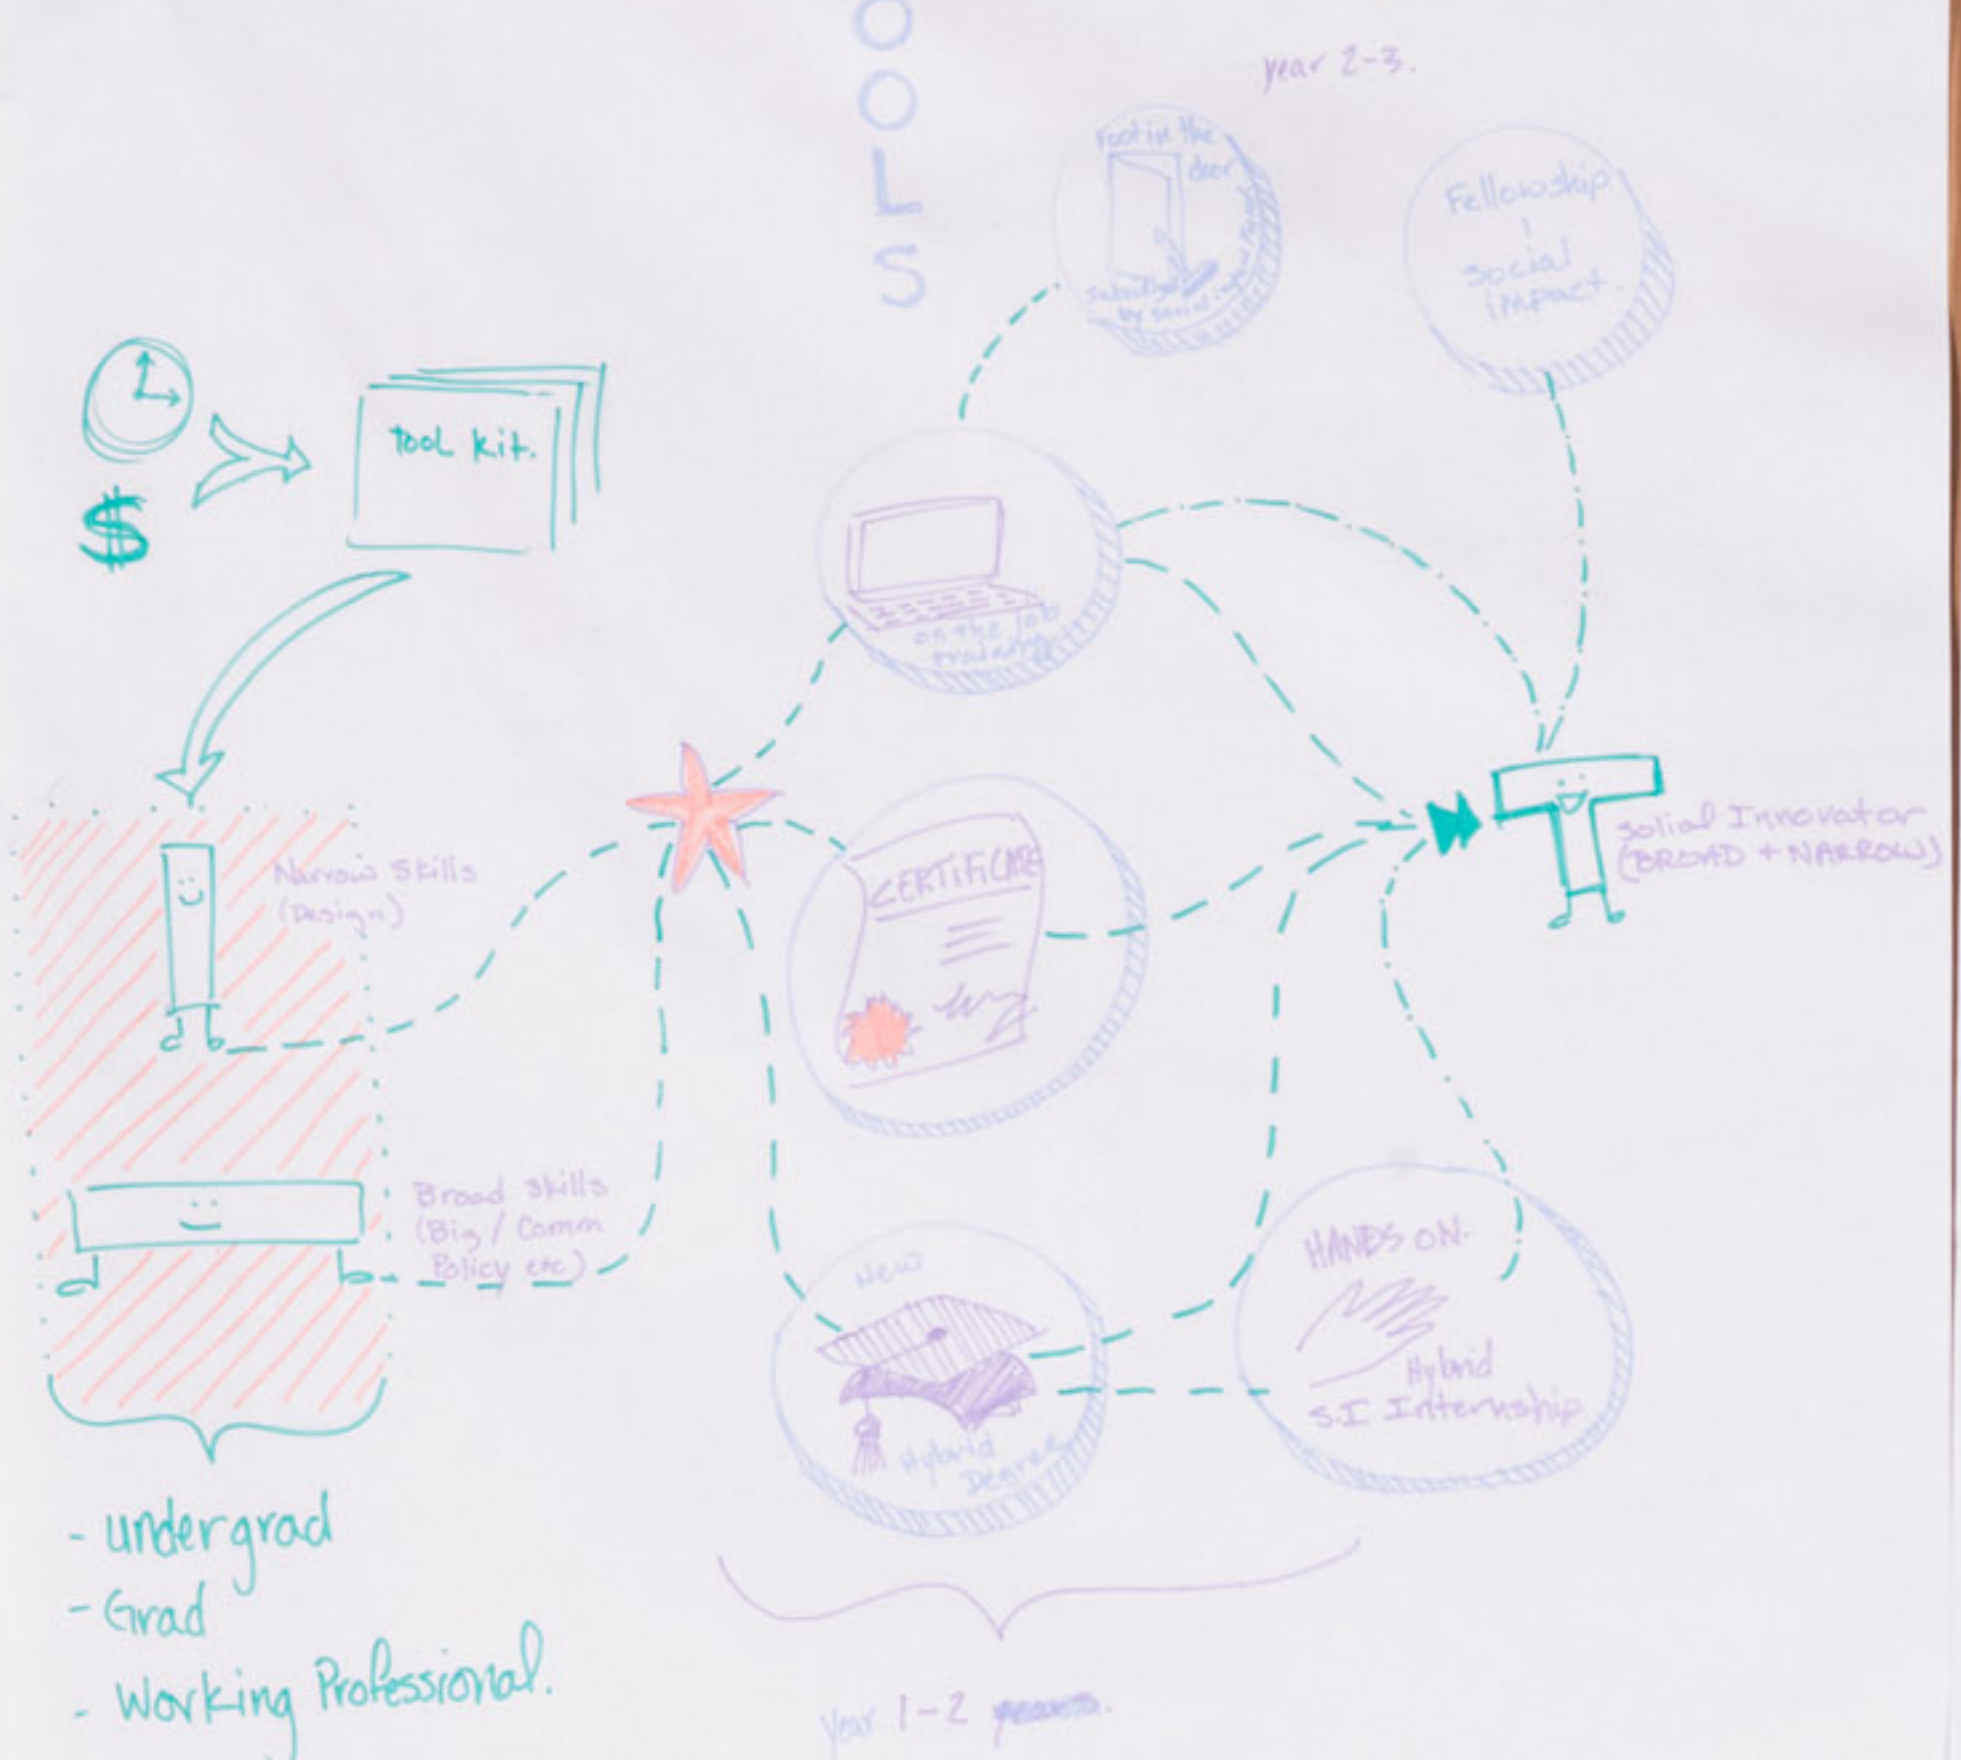 O
O
L
S
year 2-3.
Foot in the
door
by social
Fellowship
social
impact.
$
Tool kit.
on the job
training
Narrow Skills
(Design)
CERTIFICATE
Solial Innovator
(BROAD + NARROW)
Broad skills
(Biz / Comm
Policy etc)
New
Hybrid
Degree
HANDS ON.
Hybrid
S.I Internship
- undergrad
- Grad
- Working Professional.
Year 1-2